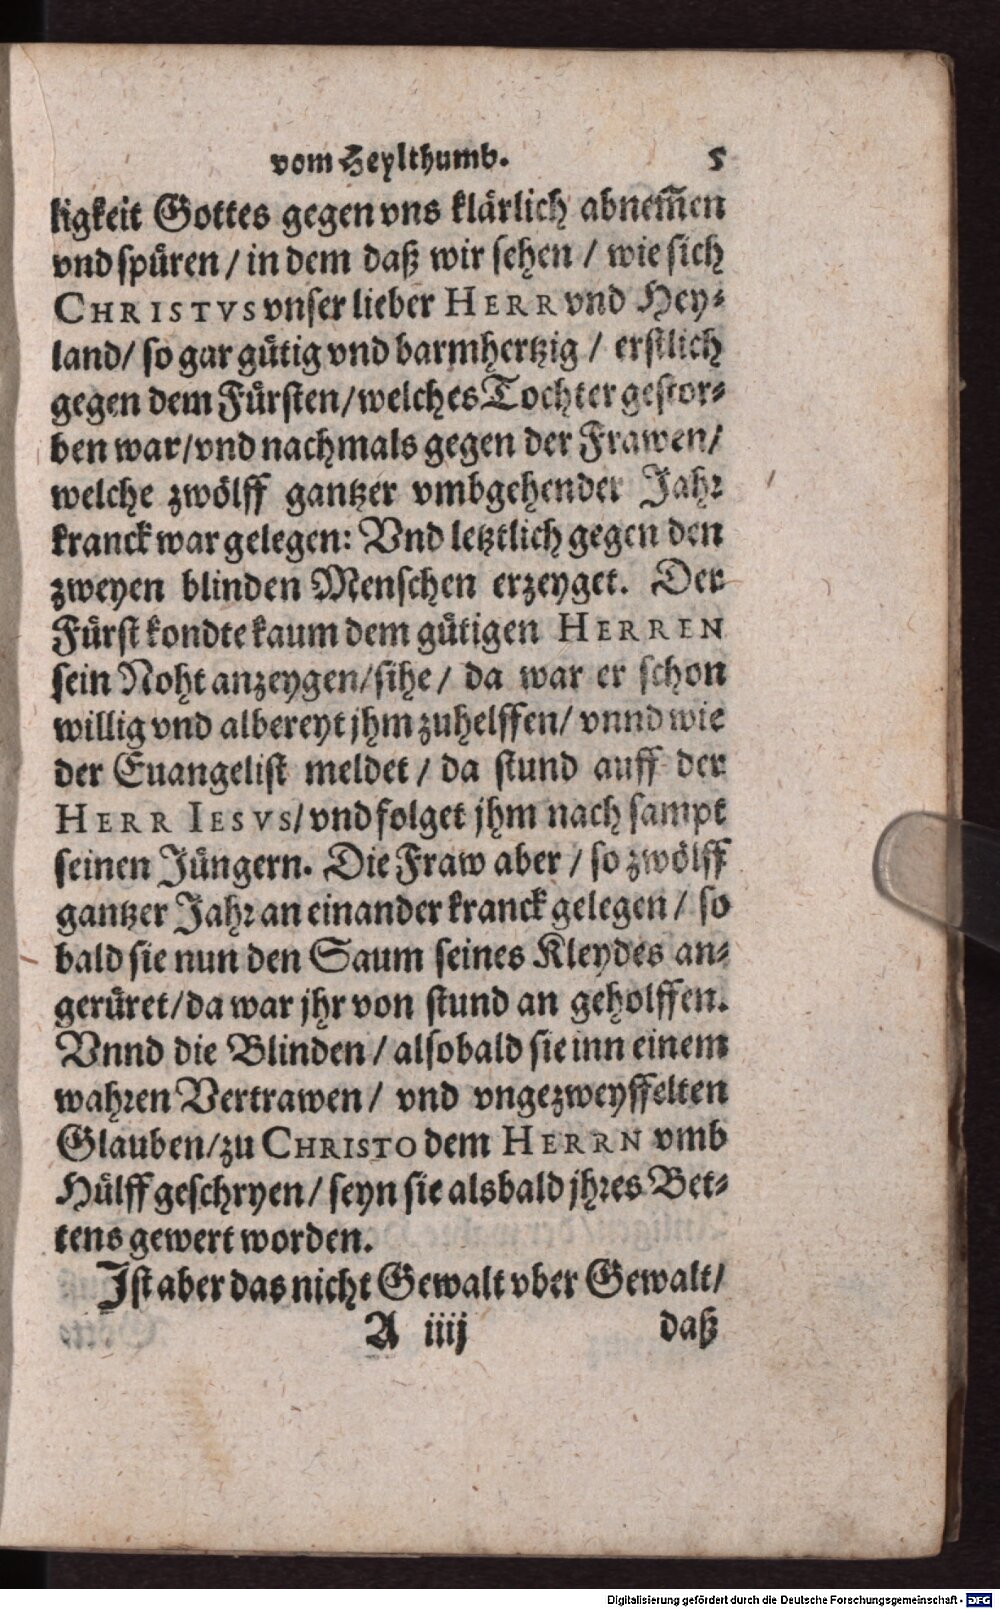 vom Heylthumb. 5
ligkeit Gottes gegen vns klärlich abnem̃en
vnd spüren / in dem daß wir sehen / wie sich
CHRISTVS vnser lieber HERR vnd Hey-
land / so gar gütig vnd barmhertzig / erstlich
gegen dem Fürsten / welches Tochter gestor-
ben war / vnd nachmals gegen der Frawen /
welche zwölff gantzer vmbgehender Jahr
kranck war gelegen: Vnd letztlich gegen den
zweyen blinden Menschen erzeyget. Der
Fürst kondte kaum dem gütigen HERREN
sein Noht anzeygen / sihe / da war er schon
willig vnd albereyt jhm zuhelffen / vnnd wie
der Euangelist meldet / da stund auff der
HERR IESVS / vnd folget jhm nach sampt
seinen Jüngern. Die Fraw aber / so zwölff
gantzer Jahr an einander kranck gelegen / so
bald sie nun den Saum seines Kleydes an-
gerüret / da war jhr von stund an geholffen.
Vnnd die Blinden / alsobald sie inn einem
wahren Vertrawen / vnd vngezweyffelten
Glauben / zu CHRISTO dem HERRN vmb
Hülff geschryen / seyn sie alsbald jhres Bet-
tens gewert worden.
Ist aber das nicht Gewalt vber Gewalt /
A iiij daß
Digitalisierung gefördert durch die Deutsche Forschungsgemeinschaft - DFG